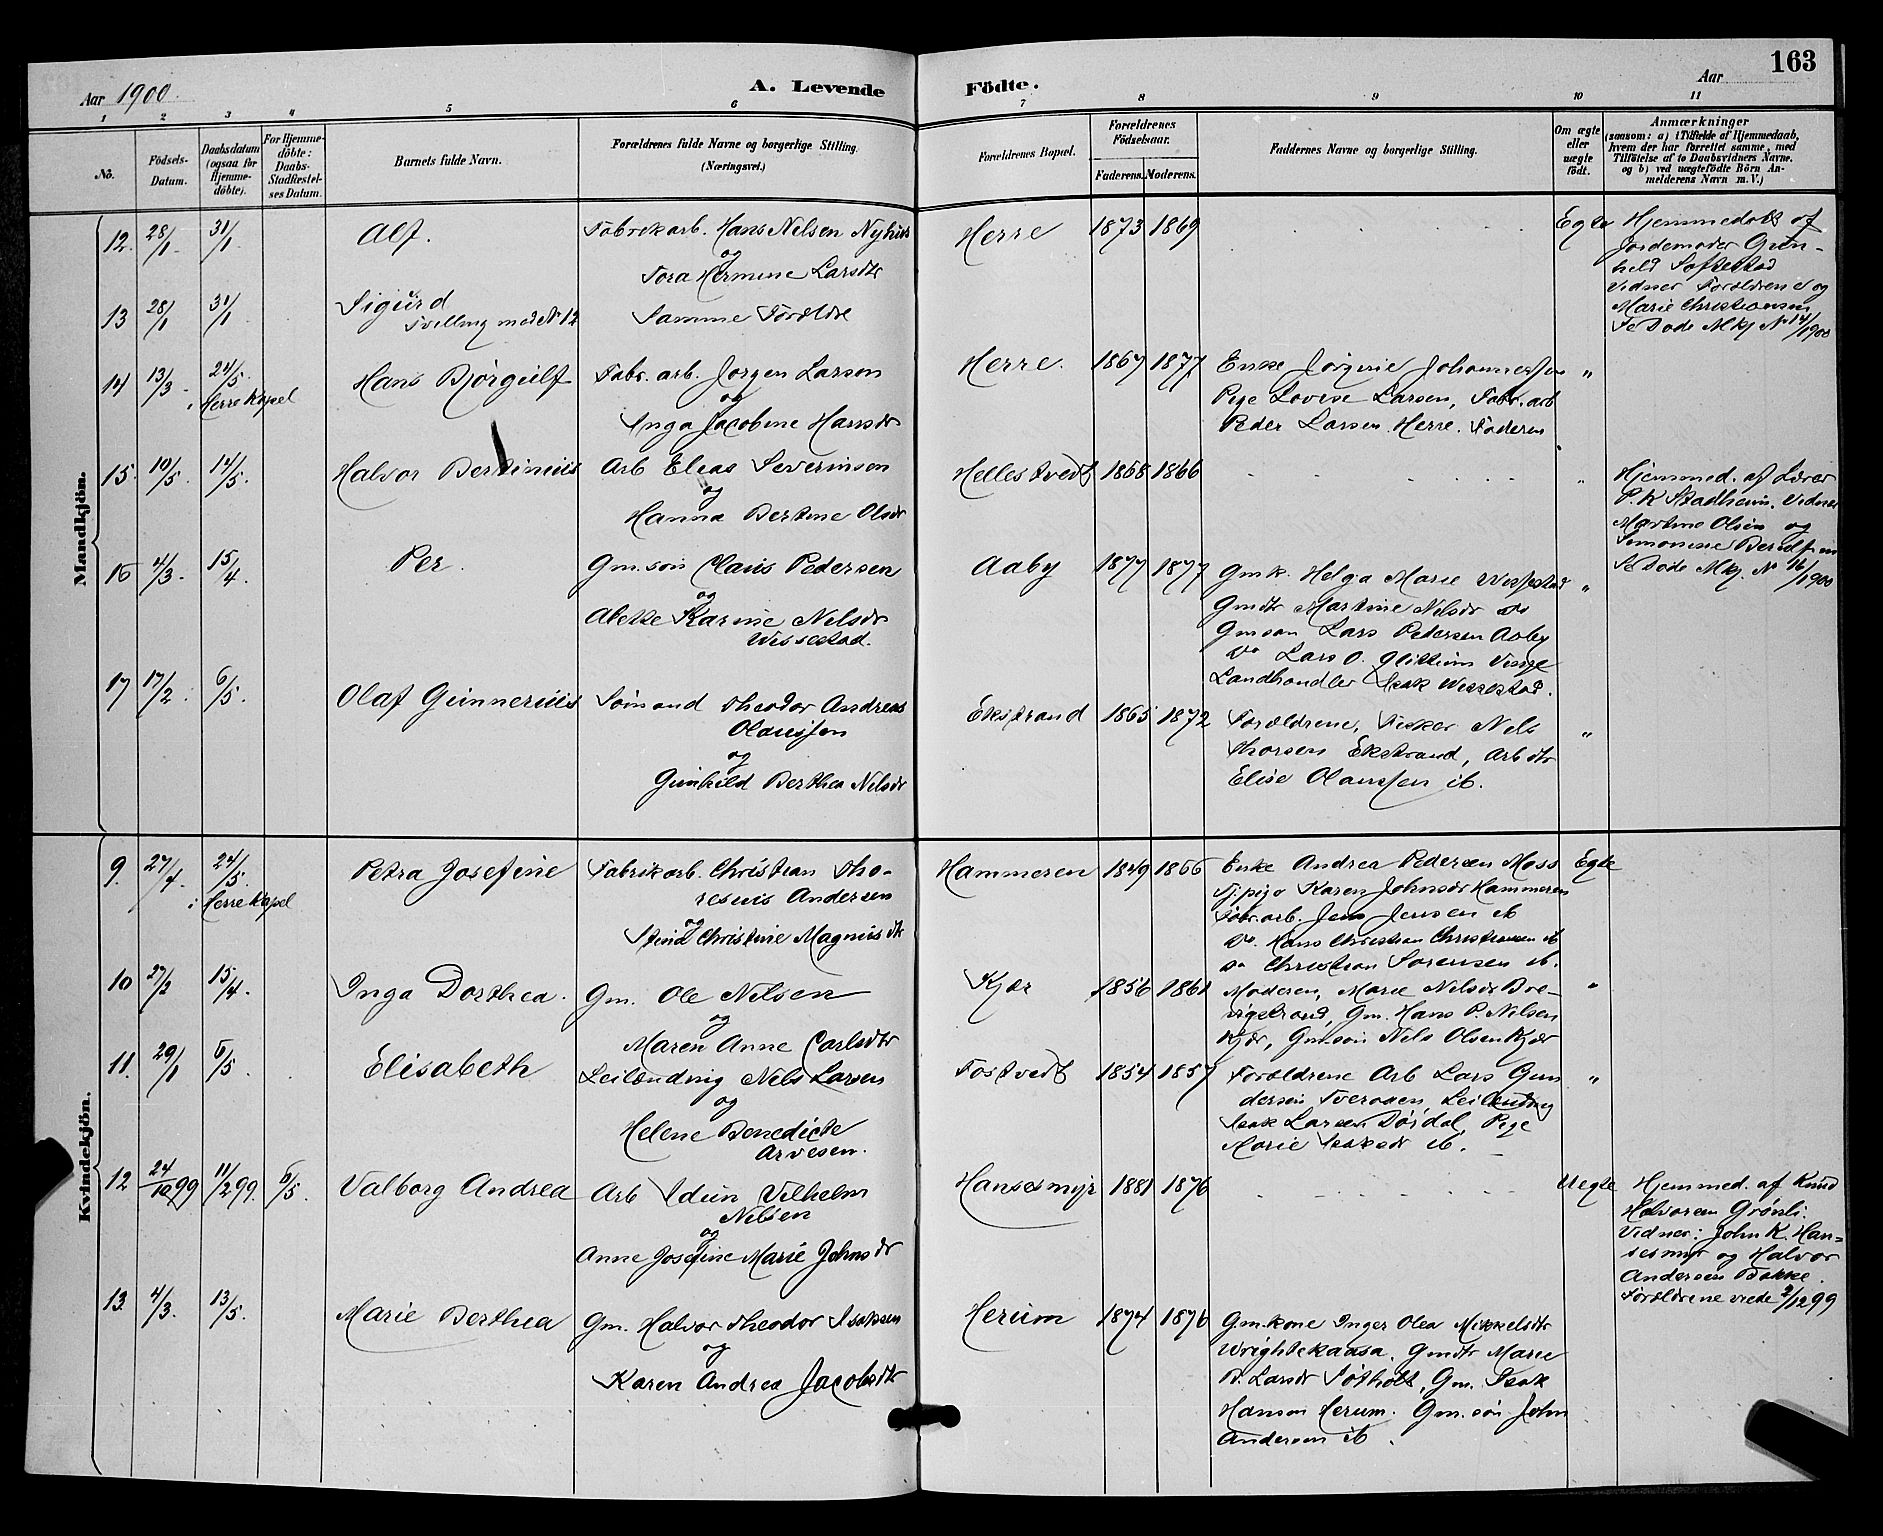 163
Aar 1900.
A. Levende
Födte.
Aar
1 2 3 4 5 6 7 8 9 10 11
No.
Födsels-Datum.
Daabsdatum (ogsaa for Hjemme-döbte).
For Hjemme-döbte: Daabs-Stadfæstel-ses Datum.
Barnets fulde Navn.
Forældrenes fulde Navne og borgerlige Stilling.
(Næringsvei.)
Forældrenes Bopæl.
Forældrenes Födselsaar.
Faderens. Moderens.
Faddernes Navne og borgerlige Stilling.
Om ægte eller uægte födt.
Anmærkninger
(saasom: a) i Tilfælde af Hjemmedaab,
hvem der har forrettet samme, med
Tilföielse af to Daabsvidners Navne.
og b) ved uægtefödte Börn An-
melderens Navn m. V.)
Mandkjön.
12. 28/1 31/1 Alf. Fabrikarb. Hans Nelsen Nyhus
og
Tora Hermine Larsdtr
Herre 1873 1869 Egte
Hjemmedøbt af
Jordemoder Gun-
hild Toftestad
Vidner Forældrene og
Marie Christiansen
Se Døde Mkj No 14/1900
13 28/1 31/1 Sigurd
Tvilling med No 12
Samme Forældre
14 13/3 24/5. i Herre Kapel Hans Bjørgulf Fabr. arb. Jørgen Larsen
og
Inga Jacobine Hansdr
Herre. 1867 1877
Enke Jørgine Johannessen
Pige Lovise Larsen, Fabr. arb
Peder Larsen Herre. Faderen
"
15. 10/5. 14/5. Halvor Bertinius Arb Elias Severinsen
og
Hanna Bertine Olsdr
Hellestvedt 1868 1866 "
Hjemmed. af Lærer
P. K Stadheim. Vidner
Martine Olsen og
Simonine Berntsen
Se Døde Mkj. No 16/1900
16 4/3. 15/4. Per. Gm. søn Claus Pedersen
og
Alette Karine Nilsdr
Wissestad.
Aaby 1877 1877
Gmk. Helga Marie Wissestad
Gmdtr Martine Nilsdr do
Gmsøn Lars Pedersen Aaby
do Lars O. Visse
Landhandler Isak Wissestad.
"
17 17/2. 6/5. Olaf Gunnerius Sømand Theodor Andreas
Olaussen
og
Gunhild Berthea Nilsdr
Ekstrand 1865 1872
Forældrene, Fisker Nils
Thorsen Ekstrand, Arbdtr
Elise Olaussen ib.
"
Kvindekjön.
9. 27/4. 24/5. i Herre Kapel Petra Josefine Fabrikarb. Christian Tho-
resius Andersen
og
Stina Christine Magnusdtr
Hammeren 1849 1866
Enke Andrea Pedersen Moss
Tj.pige Karen Johnsdr Hammeren
Fabr.arb. Jens Jensen ib
do. Hans Christian Christiansen ib
do Christian Sørensen ib.
Egte
10 27/2 15/4. Inga Dorthea. Gm. Ole Nilsen
og
Maren Anne Carlsdtr
Kjær 1856 1861
Moderen, Marie Nilsdr Bre-
vigstrand, Gm. Hans P. Nilsen
Kjær, Gmsøn Nils Olsen Kjær
"
11. 29/1 6/5. Elisabeth Leilænding Nils Larsen
og
Helene Benedicte
Arvesen.
Tostvedt 1854 1857
Forældrene Arb Lars Gun
dersen Tveraaen Leilænding
Isak Larsen Dørdal, Pige
Marie Isaksdr ib.
"
12 24/10 99 11/12 99. 6/5. Valborg Andrea Arb Idun Vilhelm
Nilsen
og
Anne Josefine Marie Johnsdr
Hansesmyr 1881 1876 Uegte
Hjemmed. af Knud
Halvorsen Grønli.
Vidner: John K. Han-
sesmyr og Halvor
Andersen Bakke.
Forældrene viede 2/12 99
13. 4/3. 13/5. Marie Berthea Gm. Halvor Theodor Isaksen
og
Karen Andrea Jacobsdtr
Herum 1874 1876
Gm.kone Inger Olea Mikkelsdtr
Wrightekaasa, Gmdtr Marie
B. Larsdr Tøtholt, Gm. Isak
Hansen Herum. Gm. søn John
Andersen ib.
"